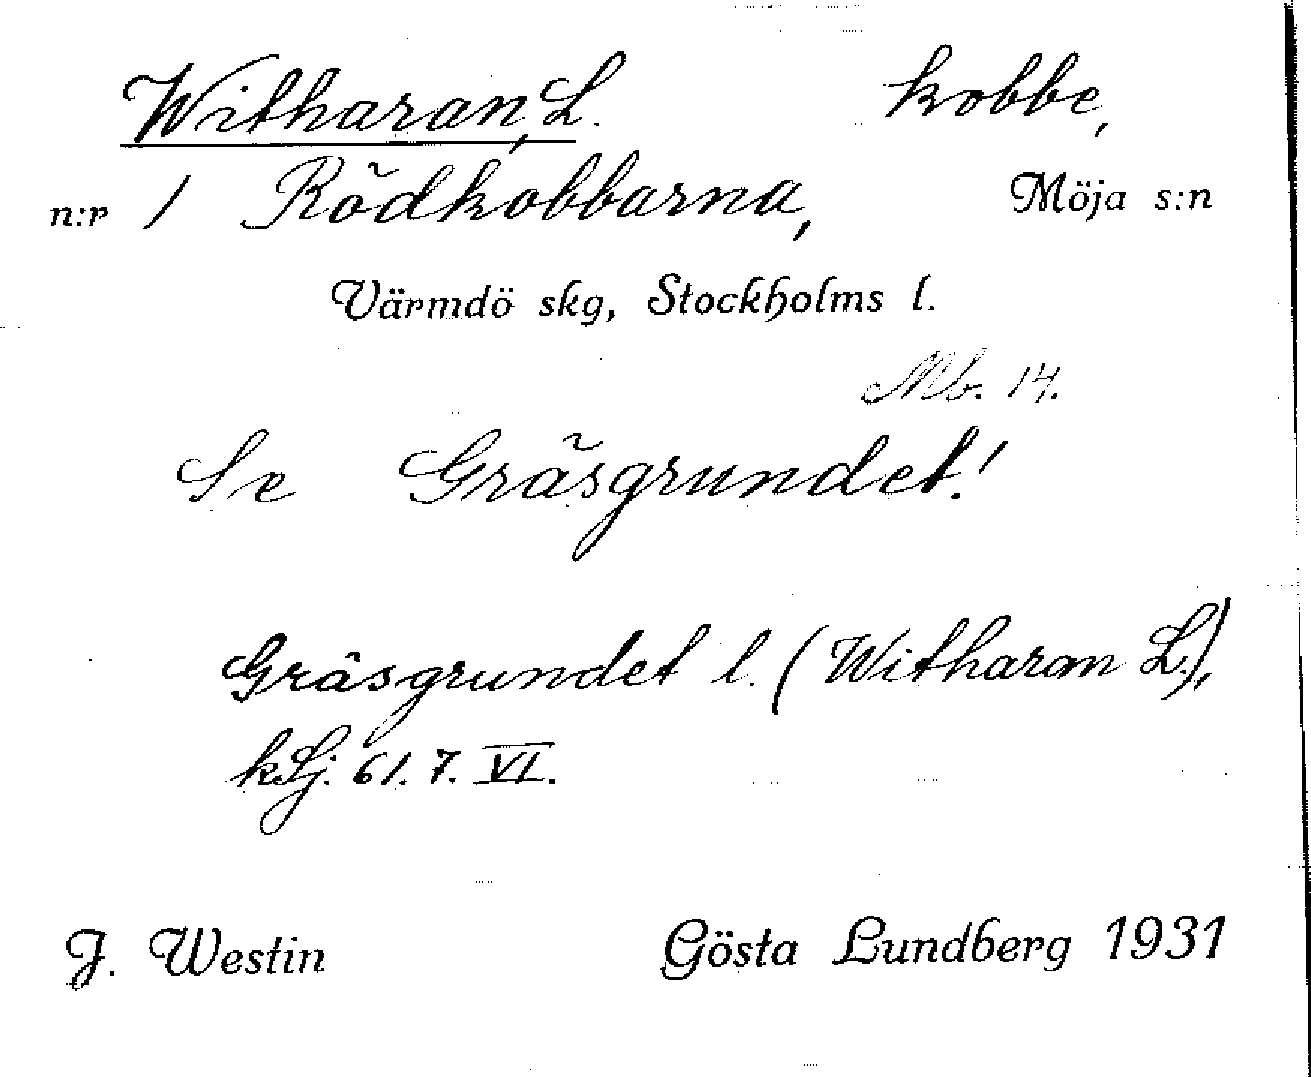 Witharan, L. kobbe,
n:r 1 Rödkobbarna, Möja s:n
Värmdö skg, Stockholms l.
Mb. 14.
Se Gräsgrundet!
Gräsgrundet l. (Witharan L.),
kSj. 61. 7. VI.
J. Westin Gösta Lundberg 1931